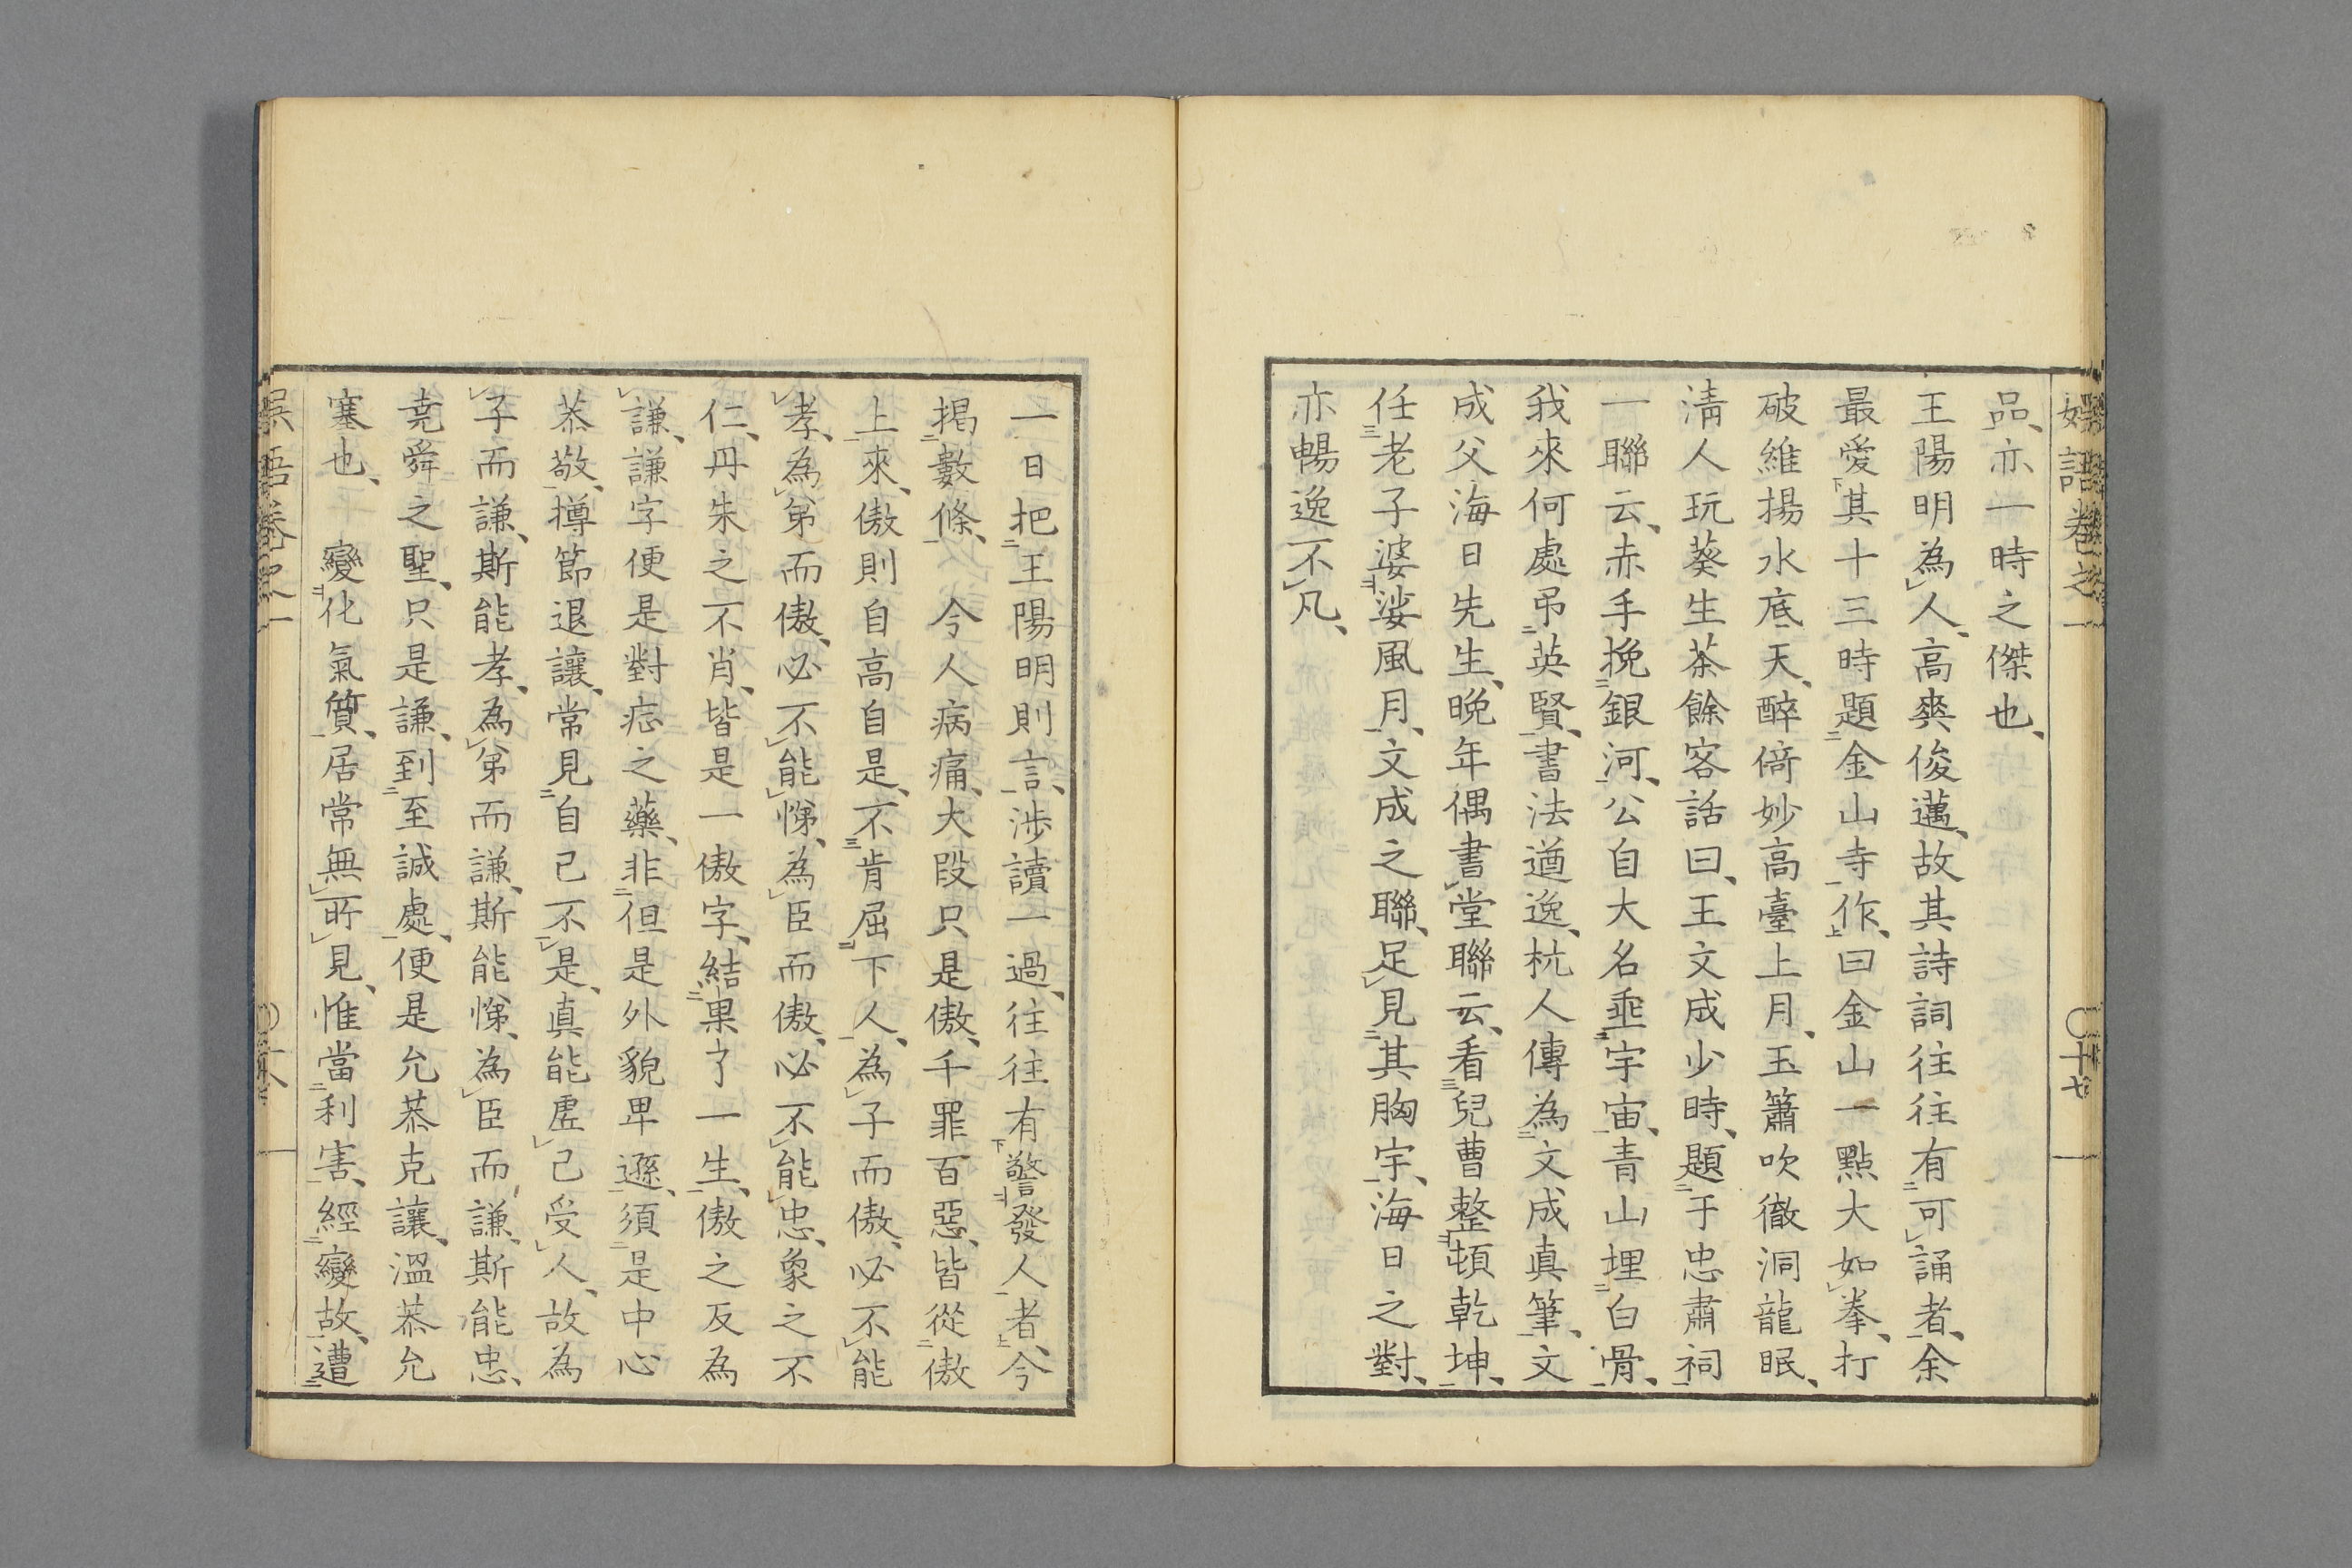 品亦一時之傑也
王陽明為人高爽俊邁故其詩詞往往有可誦者余
最愛其十三時題金山寺作曰金山一點大如拳打
破維揚水底天醉倚妙高臺上月玉簫吹徹洞龍眠
淸人玩葵生茶餘客話曰王文成少時題于忠肅祠
一聯云赤手挽銀河公自大名垂宇宙青山埋白骨
我來何處弔英賢書法遒逸杭人傳為文成真筆文
成父海日先生晚年偶書堂聯云看兒曹整頓乾坤
任老子婆娑風月文成之聯足見其胸宇海日之對
亦暢逸不凡
一日把王陽明則言渉讀一過往往有警發人者今
掲數條 今人病痛大段只是傲千罪百惡皆從傲
上來傲則自高自是不肯屈下人為子而傲必不能
孝為弟而傲必不能悌為臣而傲必不能忠象之不
仁丹朱之不肖皆是一傲字結果了一生傲之反為
謙謙字便是對症之藥非但是外貌卑遜須是中心
恭敬撙節退讓常見自己不是真能虛己受人故為
子而謙斯能孝為弟而謙斯能悌為臣而謙斯能忠
堯舜之聖只是謙到至誠處便是允恭克讓溫恭允
塞也 變化氣質居常無所見惟當利害經變故遭